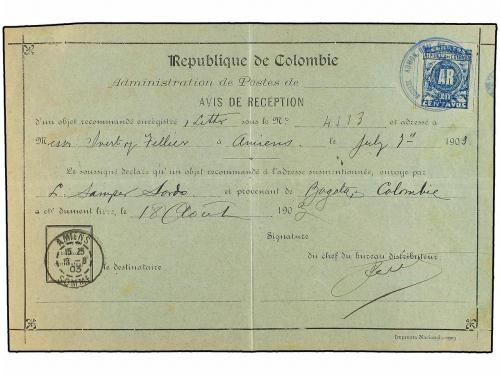 République de Colombie
Administration de Postes de
AVIS DE RECEPTION
AR
CENTAVOS
d'un objet recommandé enregistré, Letter sous le No 4313 et adressé a
Mess Ivert y Tellier à Amiens le July 7th 1903
Le soussigné déclare qu'un objet recommandé à l'adresse susmentionnée, envoyé par
L. Samper Sordo et provenant de Bogota, Colombie
a été dument livré, le 18 Août 1903
Signature
du chef du bureau distributeur
le destinataire
AMIENS
15 25
18 - 8
03
SOMME
Imprenta Nacional